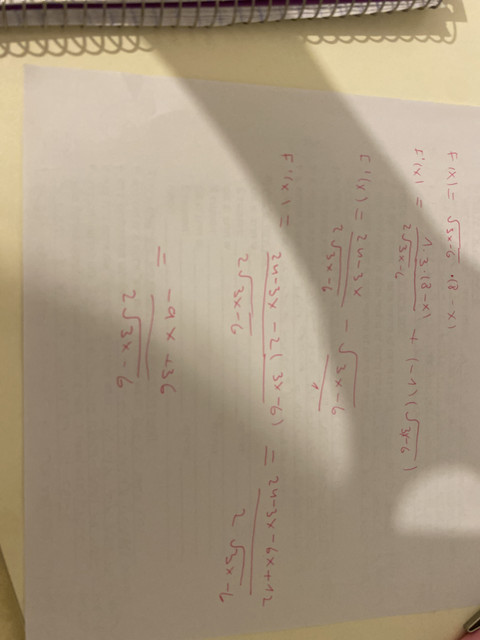 F(x) = √(3x-6) · (8-x)
F'(x) = (1·3·(8-x))/(2√(3x-6)) + (-1)(√(3x-6))
F'(x) = (24-3x)/(2√(3x-6)) - √(3x-6)/1
F'(x) = (24-3x-2(3x-6))/(2√(3x-6)) = (24-3x-6x+12)/(2√(3x-6))
= (-9x+36)/(2√(3x-6))